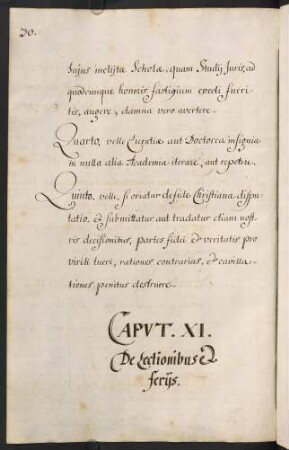 30.
hujus inclytæ Scholæ, quam Studij Juris, ad
quodcunque honoris fastigium evecti fueri-
tis, augere, damna vero avertere.
Quarto, velle Licentiæ aut Doctoreæ insignia
in nulla alia Academia iterare, aut repetere.
Quinto, velle, si oriatur de fide Christiana dispu-
tatio, et submittatur aut tradatur etiam nost-
ris decisionibus, partes fidei et veritatis pro
virili tueri, rationes contrarias, et cavilla-
tiones penitus destruere.
CAPVT. XI.
De Lectionibus et
ferijs.